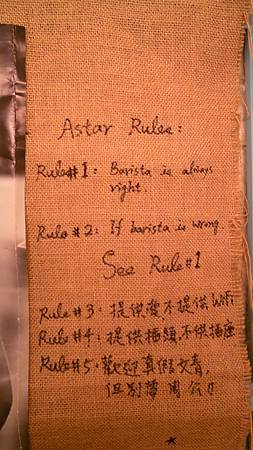 Astar Rules:
Rule#1: Barista is always
right.
Rule #2: If barista is wrong.
See Rule#1
Rule #3: 提供愛不提供WiFi
Rule#4: 提供插頭,不供插座
Rule#5. 歡迎真假文青,
但別帶周公!!